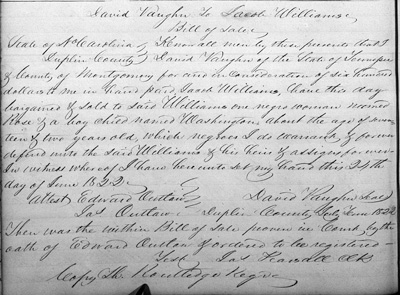 David Vaughn to Jacob Williams
Bill of Sale
State of No Carolina & Know all men by these presents that I
Duplin County David Vaughn of the State of Tennessee
& County of Montgomery for and in Consideration of six hundred
dollars to me in hand paid Jacob Williams, have this day
bargained & sold to said Williams one negro woman named
Rose & a boy child named Washington, about the age of seven
teen & two years old, which negroes I do warrant & forever
defend unto the said Williams & his heirs & assigns forever.
In witness whereof I have hereunto set my hand this 24th
day of June 1822.
Attest Edward Outlaw David Vaughn Seal
Jas Outlaw Duplin County July Term 1822
Then was the within Bill of Sale proven in Court by the
oath of Edward Outlaw & ordered to be registered
Test Jas Pearsall Clk
Copy Th. Routledge Regr